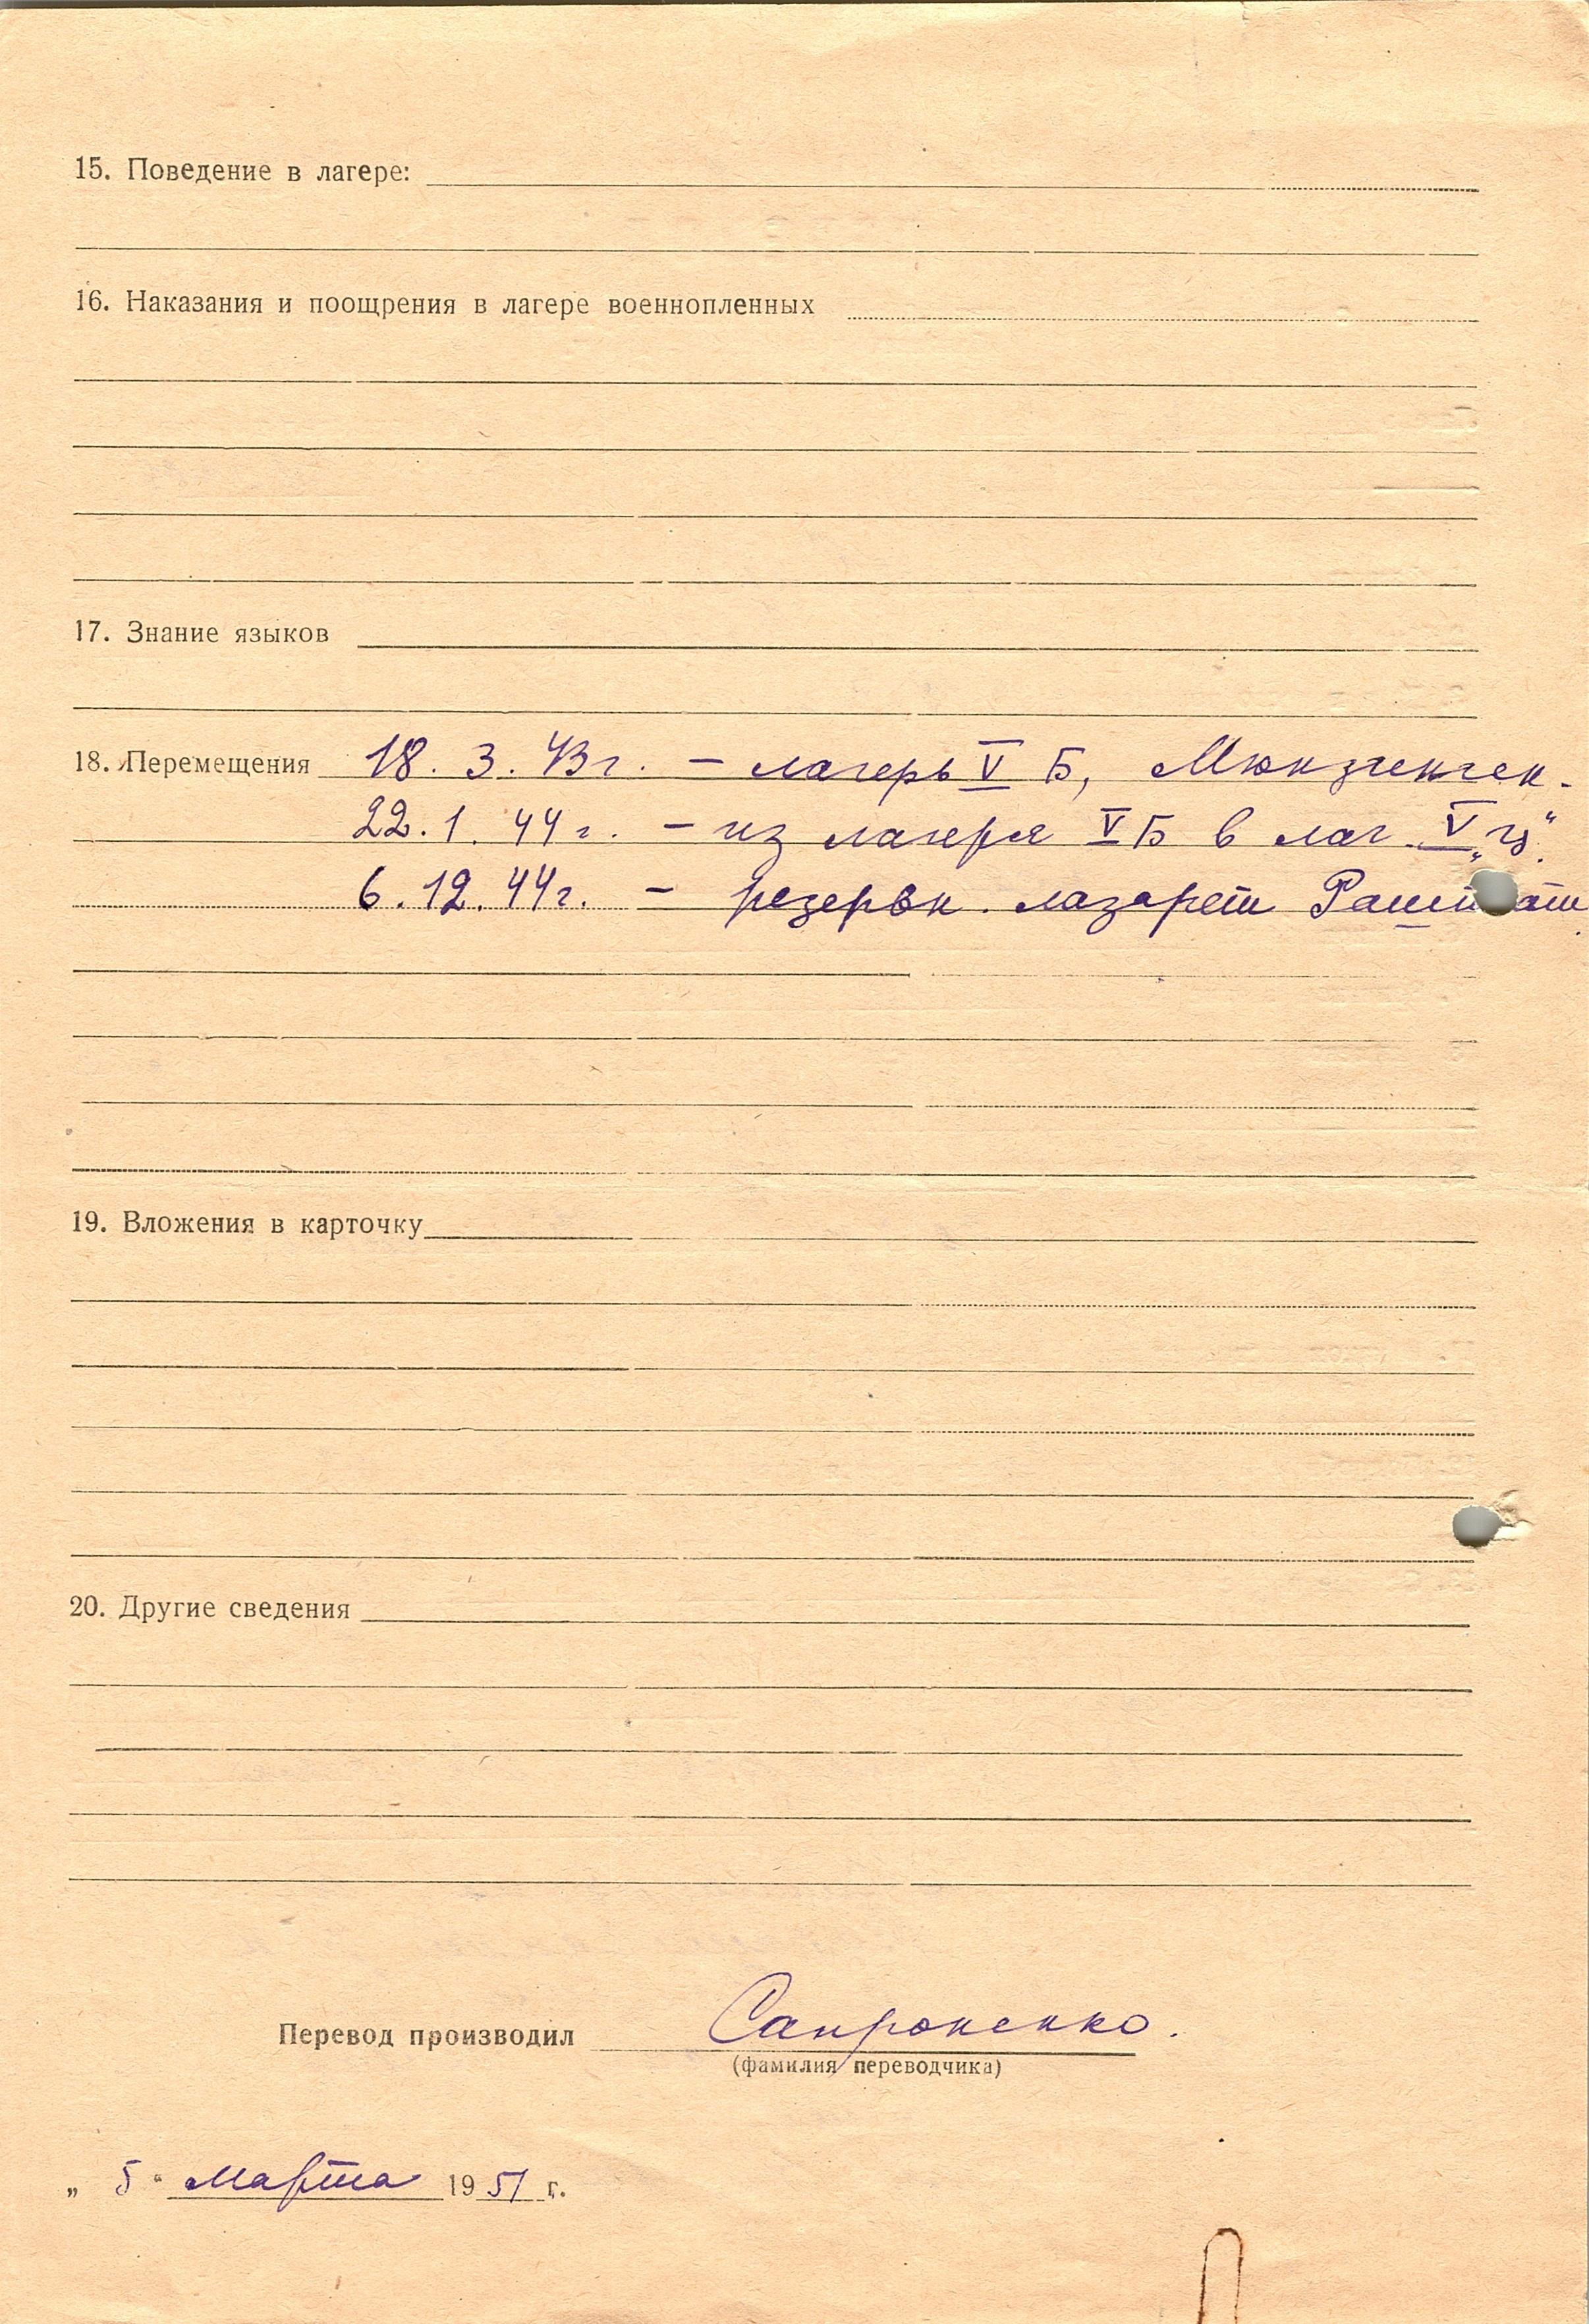 15. Поведение в лагере:
16. Наказания и поощрения в лагере военнопленных
17. Знание языков
18. Перемещения 18. 3. 43 г. – лагерь V Б, Мюнзгенген.
22. 1. 44 г. – из лагеря V Б в лаг. V „ц“.
6. 12. 44 г. – резервн. лазарет
19. Вложения в карточку
20. Другие сведения
Перевод производил Сапроненко.
(фамилия переводчика)
„ 5 “ марта 1951 г.